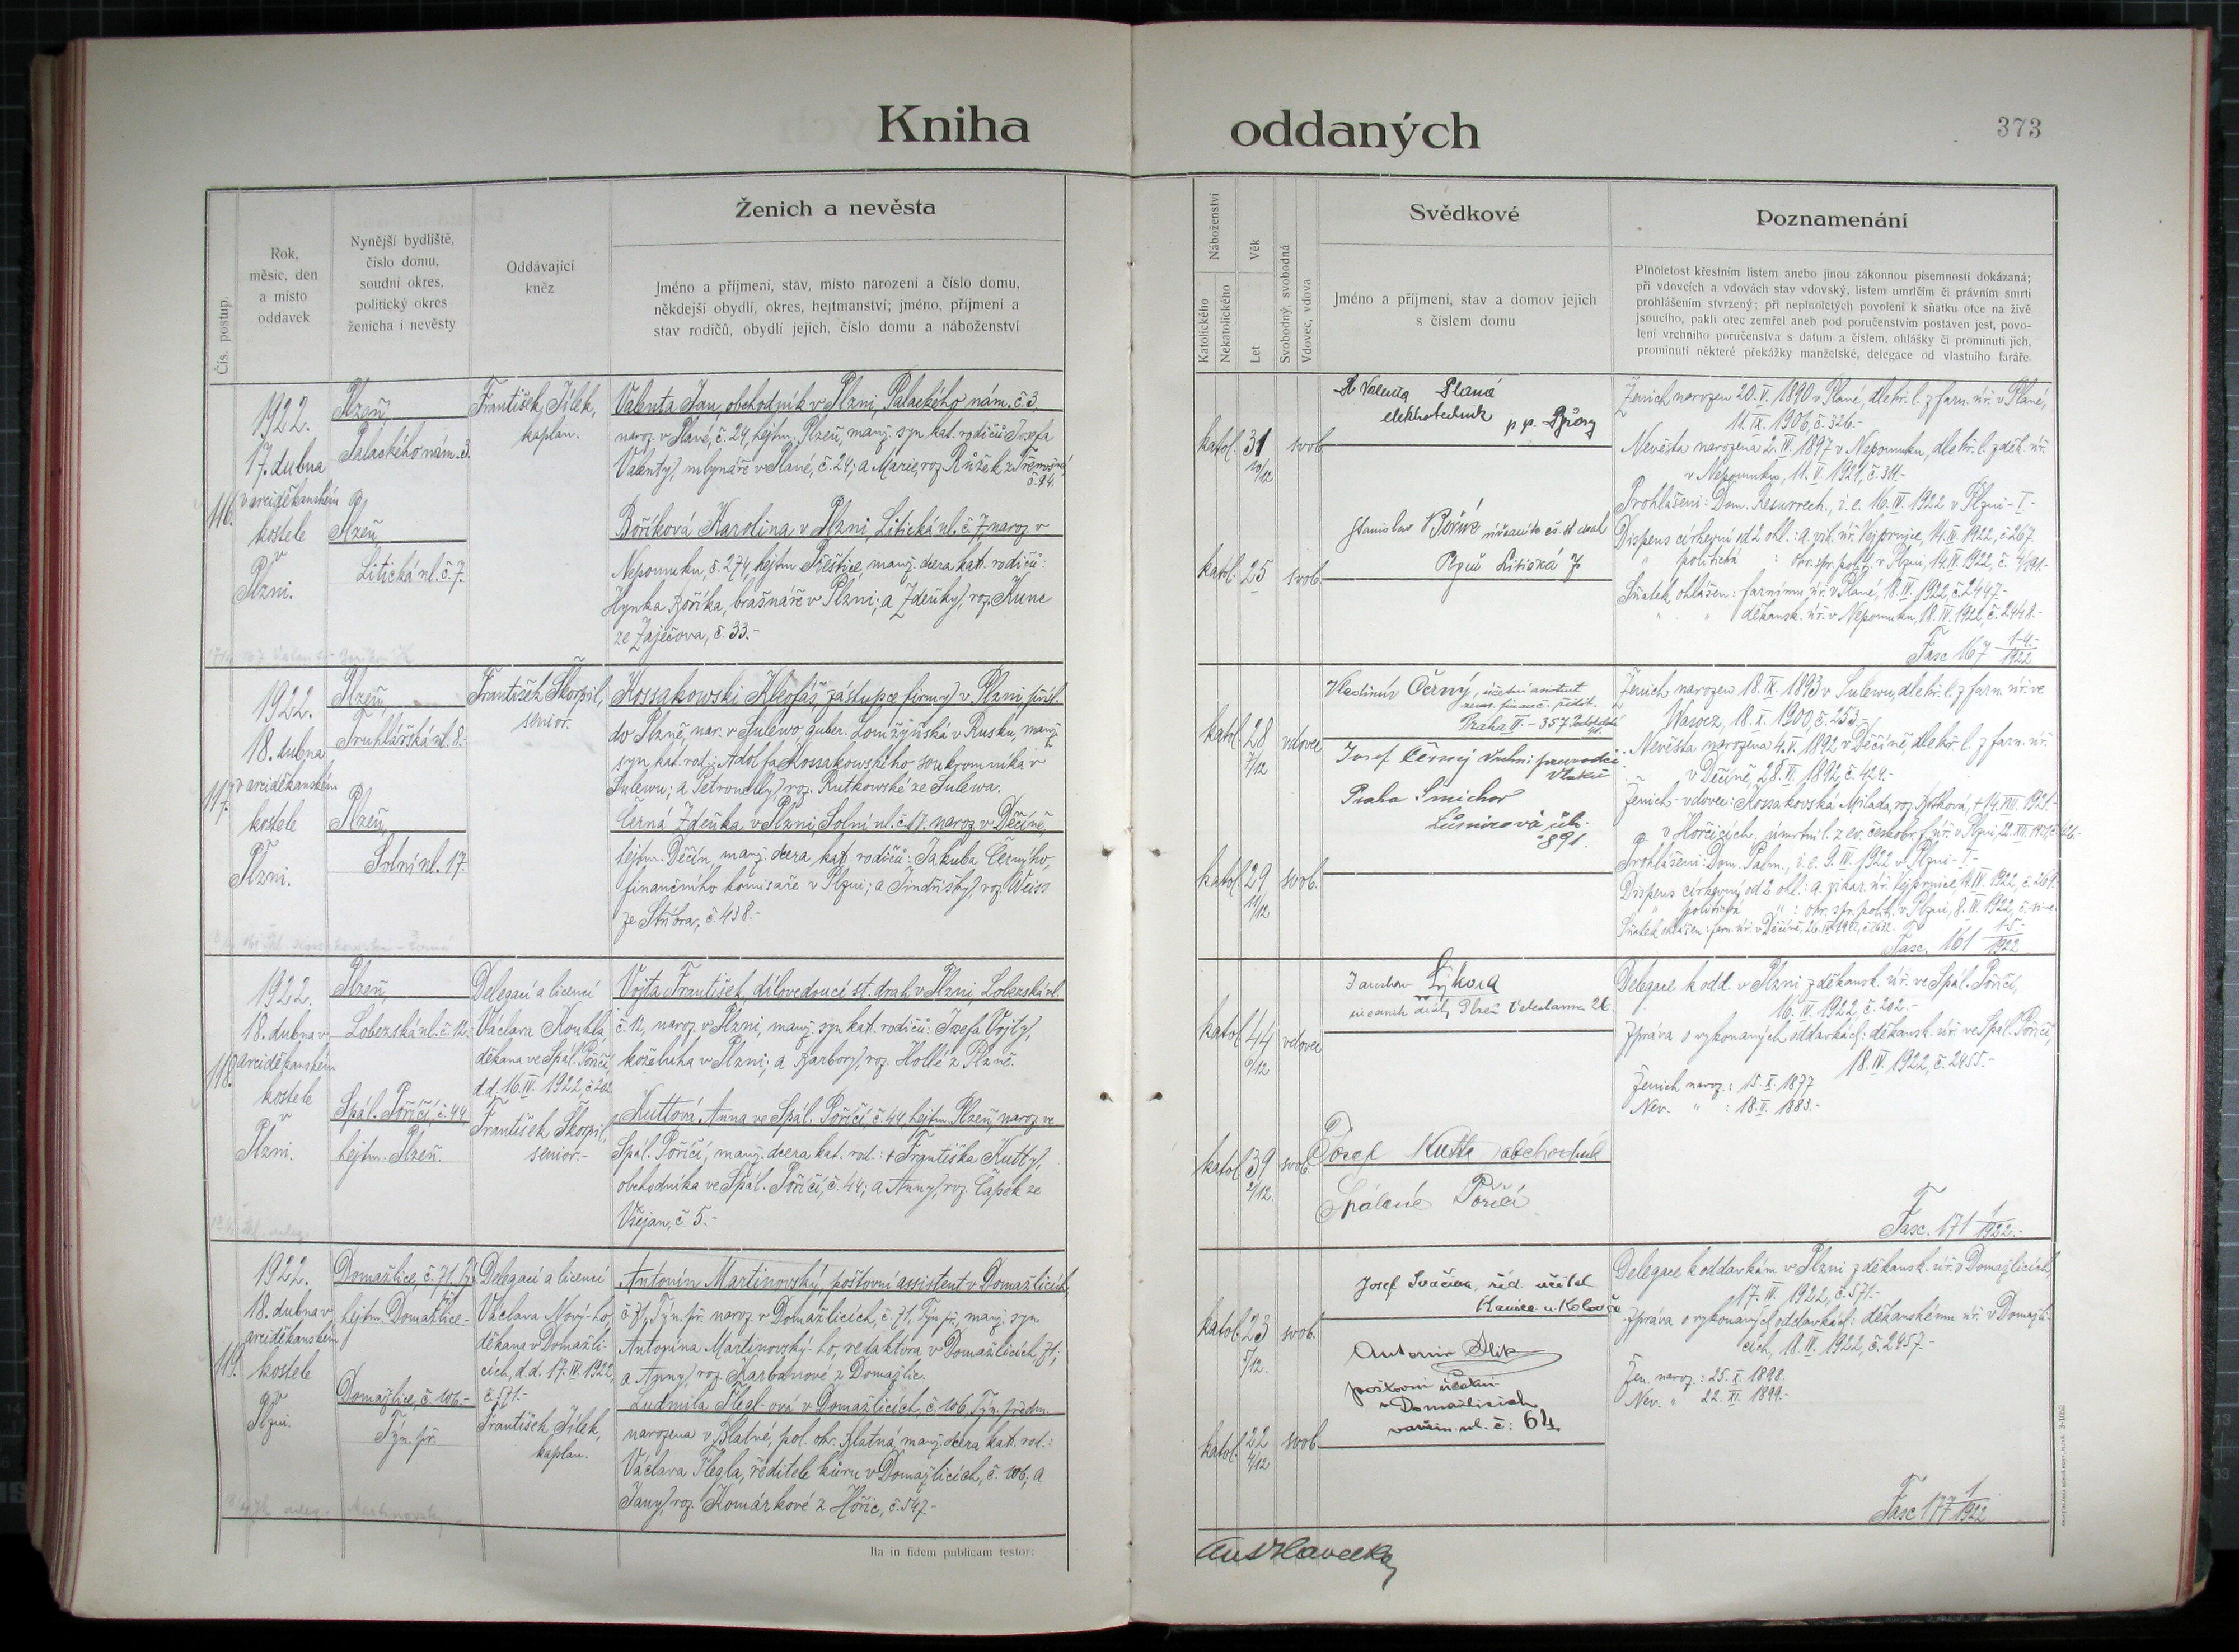 Kniha
oddaných
373
Čís. postup.
Rok,
měsíc, den
a místo
oddavek
Nynější bydliště,
číslo domu,
soudní okres,
politický okres
ženicha i nevěsty
Oddávající
kněz
Ženich a nevěsta
Jméno a příjmení, stav, místo narození a číslo domu,
někdejší obydlí, okres, hejtmanství; jméno, příjmení a
stav rodičů, obydlí jejich, číslo domu a náboženství
Náboženství
Katolického
Nekatolického
Věk
Let
Svobodný, svobodná
Vdovec, vdova
Svědkové
Jméno a příjmení, stav a domov jejich
s číslem domu
Poznamenání
Plnoletost křestním listem anebo jinou zákonnou písemností dokázaná;
při vdovcích a vdovách stav vdovský, listem umrlčím či právním smrti
prohlášením stvrzený; při neplnoletých povolení k sňatku otce na živě
jsoucího, pakli otec zemřel aneb pod poručenstvím postaven jest, povo-
lení vrchního poručenstva s datum a číslem, ohlášky či prominutí jich,
prominutí některé překážky manželské, delegace od vlastního faráře.
116.
1922.
17. dubna
v arciděkanském
kostele
v
Plzni.
Plzeň,
Palackého nám. 3.
Plzeň,
Litická ul. č. 7.
František Jílek,
kaplan.
Valenta Jan, obchodník v Plzni, Palackého nám. č. 3,
naroz. v Plané, č. 24, hejtm. Plzeň, manž. syn kat. rodičů Josefa
Valenty, mlynáře v Plané, č. 24; a Marie, roz. Růžek z Třemošné
č. 14.
Boříková Karolina v Plzni, Litická ul. č. 7, naroz. v
Nepomuku, č. 274, hejtm. Přeštice, manž. dcera kat. rodičů:
Hynka Boříka, brašnáře v Plzni; a Zdeňky, roz. Kunc
ze Zaječova, č. 33.-
katol. 31 10/12 svob.
katol. 25 svob.
Valenta Planá
elektrotechnik
Stanislav Bořík
Plzeň Litická 7
Ženich narozen 20. V. 1890 v Plané, dle kř. l. z farn. úř. v Plané,
11. IX. 1906, č. 326.-
Nevěsta narozena 2. IV. 1897 v Nepomuku, dle kř. l. z děk. úř.
v Nepomuku, 11. V. 1921, č. 311.-
Prohlášeni: Dom. Resurrech., i. e. 16. IV. 1922 v Plzni - I -
Dispens církevní od 2 ohl.: a. vik. úř. Vejprnice, 14. IV. 1922, č. 267.
" politická : okr. spr. polit. v Plzni, 14. IV. 1922, č. 4/191.-
Sňatek ohlášen: farnímu úř. v Plané, 18. IV. 1922, č. 2447.-
" " děkansk. úř. v Nepomuku, 18. IV. 1922, č. 2448.-
Fasc. 167 1-4.-/1922
117.
1922.
18. dubna
v arciděkanském
kostele
v
Plzni.
Plzeň,
Truhlářská ul. 8.-
Plzeň,
Solní ul. 17.
František Škorpil,
senior.
Kossakowski Kleofáš, zástupce firmy v Plzni, přísl.
do Plzně, nar. v Sulewo, guber. Lomžyňská v Rusku, manž.
syn kat. rod.: Adolfa Kossakowského soukromníka v
Sulewu; a Petronelly, roz. Rutkowské ze Sulewa.
Černá Zdeňka, v Plzni, Solní ul. č. 17. naroz. v Děčíně,
hejtm. Děčín, manž. dcera kat. rodičů: Jakuba Černýho,
finančního komisaře v Plzni; a Jindřišky, roz. Weiss
ze Stříbra, č. 438.-
katol. 28 7/12 vdovec
katol. 29 11/12 svob.
Vladimír Černý, účetní asistent
Praha II. - 357
Josef Černý vrchní průvodčí
vlaků
Praha Smíchov
891.
Ženich narozen 18. IX. 1893 v Sulewu, dle kř. l. z farn. úř. ve
Wawoz, 18. X. 1900, č. 253.-
Nevěsta narozena 4. V. 1892 v Děčíně, dle kř. l. z farn. úř.
v Děčíně, 28. VI. 1892, č. 424.-
Ženich - vdovec: Kossakovská Milada, roz. + 14. VIII. 1921
v Hořčicích, úmrtní l. z ev. českobr. f. úř. v Plzni,
Prohlášeni: Dom. Palm., i. e. 9. IV. 1922 v Plzni - I -
Dispens církevní od 2 ohl.: a. vikar. úř. Vejprnice, 14. IV. 1922, č. 269.
" politická " : okr. spr. polit. v Plzni, 8. IV. 1922,
Sňatek ohlášen: farn. úř. v Děčíně,
Fasc. 161 1-5.-/1922
118.
1922.
18. dubna v
arciděkanském
kostele
v
Plzni.
Plzeň,
Lobezská ul. č. 12.
Spál. Poříčí, č. 44
hejtm. Plzeň.
Delegací a licencí
Václava Koukla,
děkana ve Spál. Poříčí,
d. d. 16. IV. 1922, č. 202
František Škorpil,
senior.-
Vojta František, dílovedoucí st. drah v Plzni, Lobezská ul.
č. 12, naroz. v Plzni, manž. syn kat. rodičů: Josefa Vojty,
koželuha v Plzni; a Barbory, roz. Hollé z Plzně.
Kuttová Anna ve Spál. Poříčí, č. 44, hejtm. Plzeň, naroz. ve
Spál. Poříčí, manž. dcera kat. rod.: + Františka Kutty,
obchodníka ve Spál. Poříčí, č. 44; a Anny, roz. Čapek ze
Všejan, č. 5.-
katol. 44 6/12 vdovec
katol. 39 2/12. svob.
Jaroslav Sýkora
Josef Kutta obchodník
Spálené Poříčí
Delegace k odd. v Plzni z děkansk. úř. ve Spál. Poříčí,
16. IV. 1922, č. 202.-
Zpráva o vykonaných oddavkách: děkansk. úř. ve Spál. Poříčí,
18. IV. 1922, č. 2455.-
Ženich naroz.: 15. X. 1877
Nev. " : 18. II. 1883.-
Fasc. 171 1/1922.-
119.
1922.
18. dubna v
arciděkanském
kostele
v
Plzni.
Domažlice, č. 71, Týn.
hejtm. Domažlice.-
Domažlice, č. 106.-
Týn. př.
Delegací a licencí
Václava Nový-ho,
děkana v Domažli-
cích, d. d. 17. IV. 1922,
č. 571.-
František Jílek,
kaplan.
Antonín Martinovský, poštovní assistent v Domažlicích,
č. 71, Týn. př. naroz. v Domažlicích, č. 71, Týn. př., manž. syn
Antonína Martinovský-ho, redaktora v Domažlicích, 71;
a Anny, roz. Karbanové z Domažlic.
Ludmila Flegl-ová v Domažlicích, č. 106, Týn. předm.
narozena v Blatné, pol. okr. Blatná, manž. dcera kat. rod.:
Václava Flegla, ředitele kůru v Domažlicích, č. 106; a
Jany, roz. Komárkové z Hořic, č. 547.-
katol. 23 5/12. svob.
katol. 22 4/12 svob.
Josef Svačina, říd. učitel
Kanice u. Koloveče
Antonín
poštovní
v Domažlicích
č: 64
Delegace k oddavkám v Plzni z děkansk. úř. v Domažlicích,
17. IV. 1922, č. 571.-
Zpráva o vykonaných oddavkách: děkanskému úř. v Domažli-
cích, 18. IV. 1922, č. 2457.-
Žen. naroz.: 25. X. 1898.
Nev. " 22. XI. 1899.-
Fasc. 177 1/1922
Ita in fidem publicam testor: